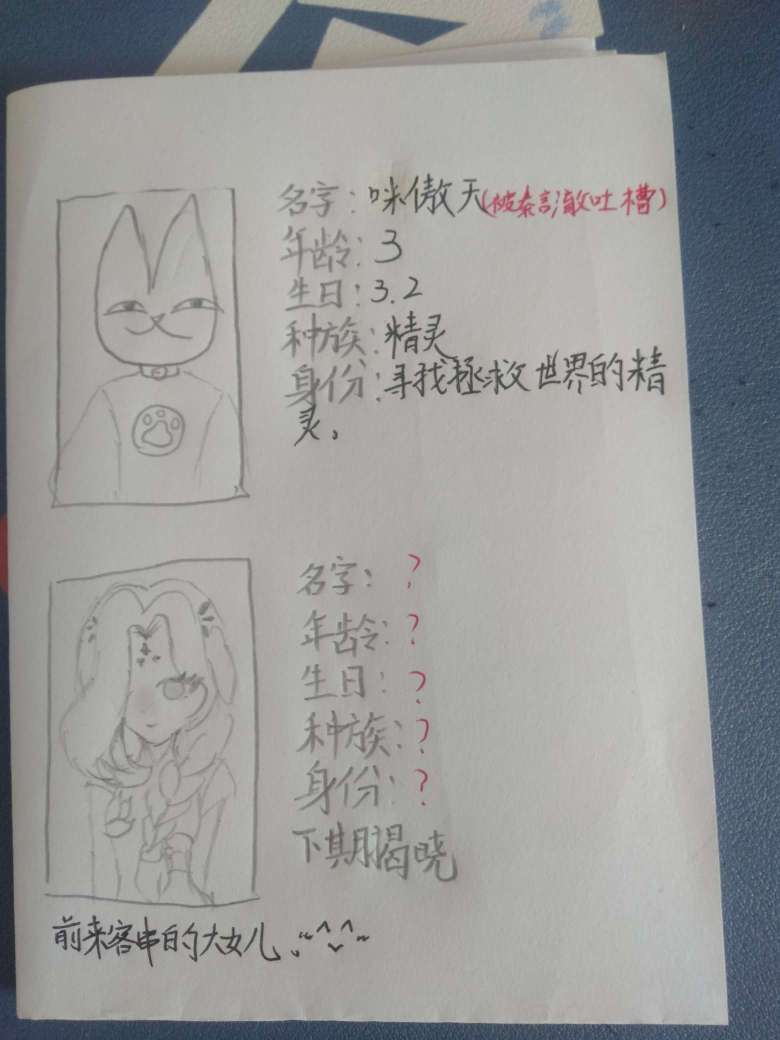 名字：咪傲天(被秦言澈吐槽)
年龄：3
生日：3.2
种族：精灵
身份：寻找拯救世界的精
灵。
名字：？
年龄：？
生日：？
种族：？
身份：？
下期揭晓
前来客串的大女儿